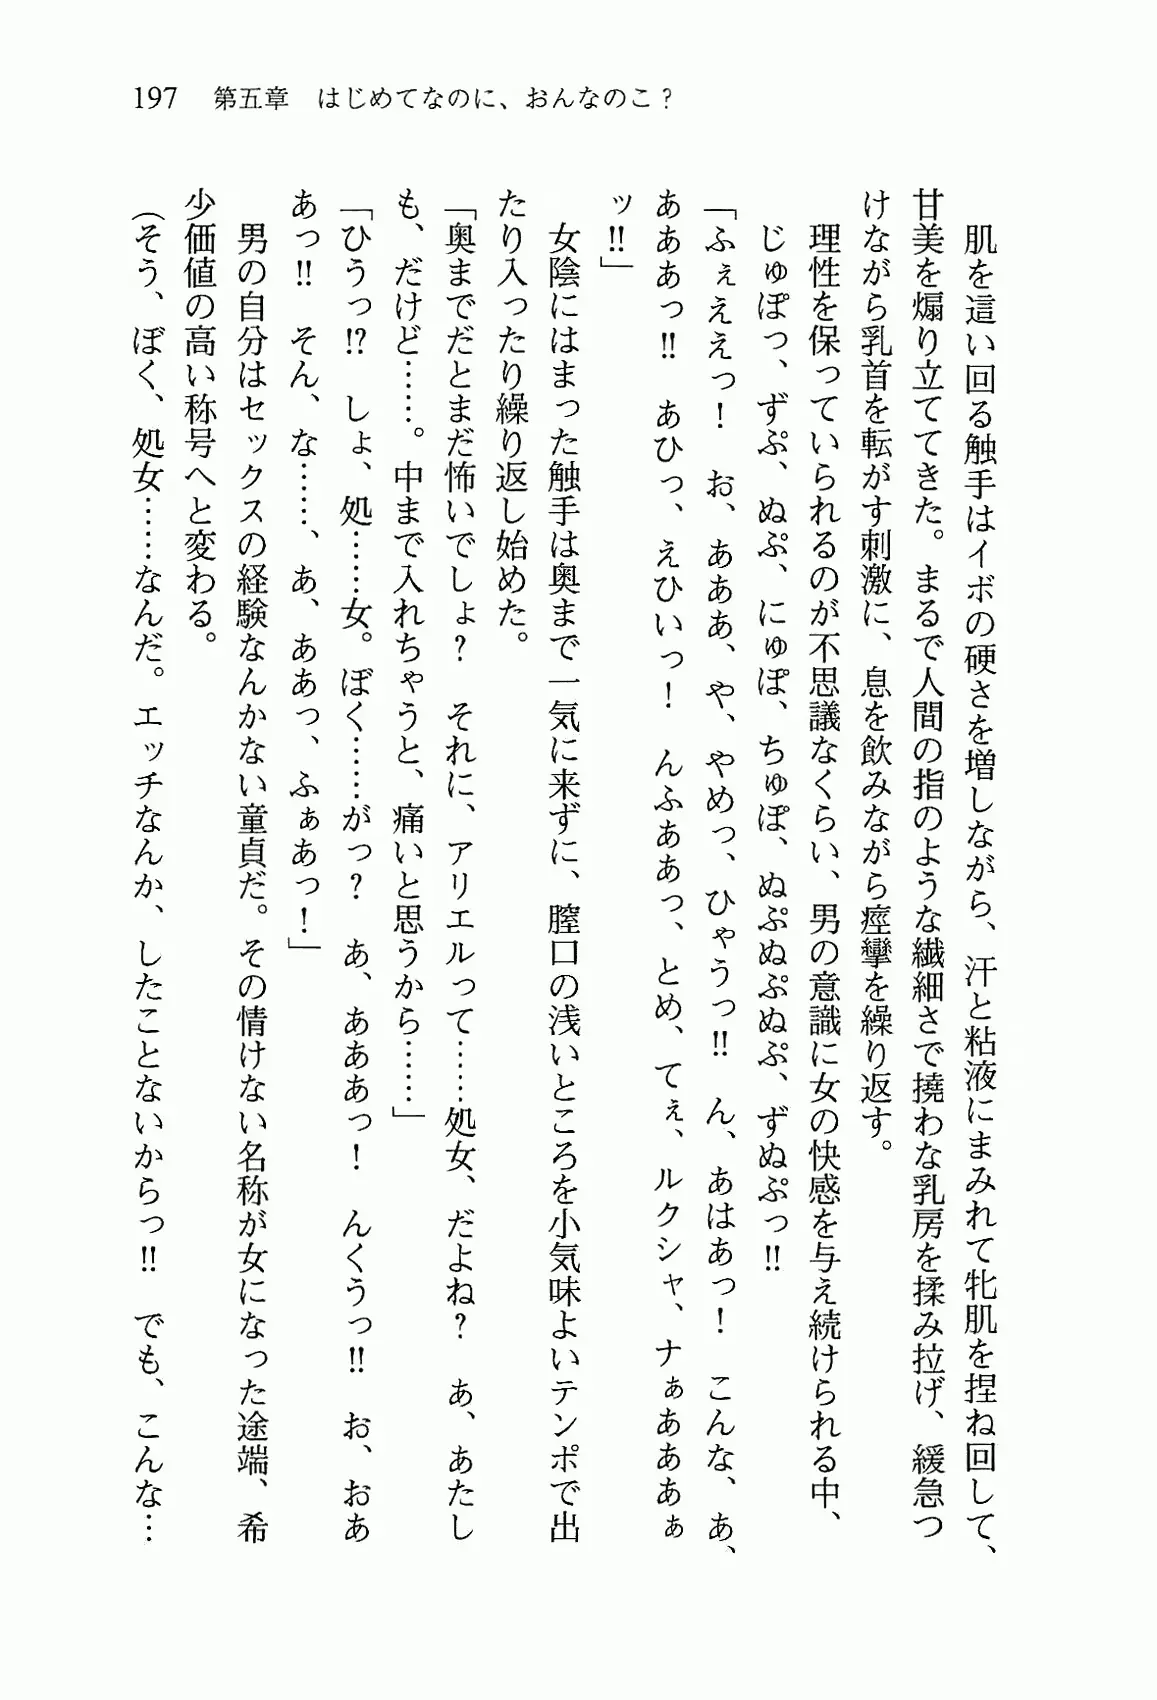 197 第五章 はじめてなのに、おんなのこ?
肌を這い回る触手はイボの硬さを増しながら、汗と粘液にまみれて牝肌を捏ね回して、
甘美を煽り立ててきた。まるで人間の指のような繊細さで撓わな乳房を揉み拉げ、緩急つ
けながら乳首を転がす刺激に、息を飲みながら痙攣を繰り返す。
理性を保っていられるのが不思議なくらい、男の意識に女の快感を与え続けられる中、
じゅぽっ、ずぷ、ぬぷ、にゅぽ、ちゅぽ、ぬぷぬぷぬぷ、ずぬぷっ!!
「ふぇええっ! お、あああ、や、やめっ、ひゃうっ!! ん、あはあっ! こんな、あ、
あああっ!! あひっ、えひいっ! んふああっ、とめ、てぇ、ルクシャ、ナぁあああぁ
ッ!!」
女陰にはまった触手は奥まで一気に来ずに、膣口の浅いところを小気味よいテンポで出
たり入ったり繰り返し始めた。
「奥までだとまだ怖いでしょ? それに、アリエルって……処女、だよね? あ、あたし
も、だけど……。中まで入れちゃうと、痛いと思うから……」
「ひうっ!? しょ、処……女。ぼく……がっ? あ、あああっ! んくうっ!! お、おあ
あっ!! そん、な……、あ、ああっ、ふぁあっ!」
男の自分はセックスの経験なんかない童貞だ。その情けない名称が女になった途端、希
少価値の高い称号へと変わる。
(そう、ぼく、処女……なんだ。エッチなんか、したことないからっ!! でも、こんな…